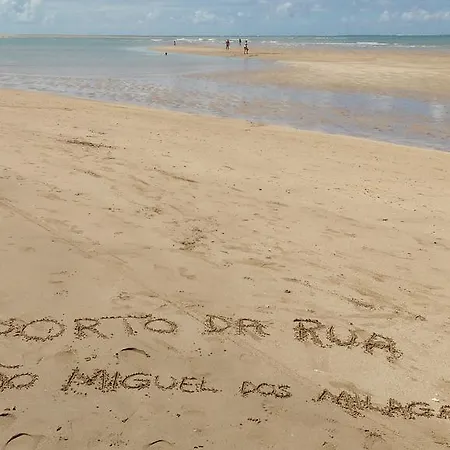 PORTO DA RUA
SÃO MIGUEL DOS MILAGRE